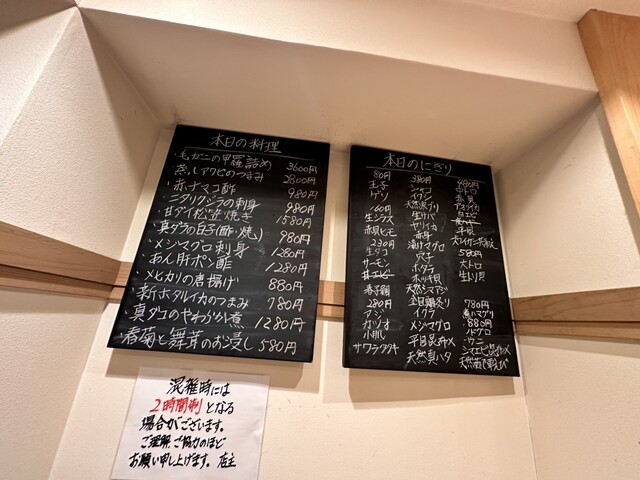 本日の料理
・毛ガニの甲羅詰め 3600円
・蒸しアワビのつまみ 2800円
・赤ナマコ酢 980円
・ニタリクジラの刺身 980円
・甘ダイ松笠焼き 1580円
・真ダラの白子(酢・焼) 980円
・メジマグロ刺身 1280円
・あん肝ポン酢 1280円
・メヒカリの唐揚げ 880円
・新ホタルイカのつまみ 780円
・真ダコのやわらか煮 1280円
・春菊と舞茸のお浸し 580円
本日のにぎり
80円
玉子
ゲソ
160円
生シラス
赤貝ヒモ
230円
生タコ
サーモン
春子鯛
280円
アジ
カツオ
小肌
サワラタタキ
380円
シャコ
天然ブリ
生サバ
ヤリイカ
赤身
漬けマグロ
穴子
ホタテ
ホッキ貝
天然シマアジ
金目鯛炙り
イクラ
メジマグロ
平目昆布〆
天然真ハタ
中トロ
赤貝
アオヤギ
平貝
580円
大トロ
生トリ貝
780円
煮ハマグリ
880円
ノドグロ
・ウニ
シマエビ昆布〆
混雑時には
2時間制となる
場合がございます。
ご理解ご協力のほど
お願い申し上げます。店主